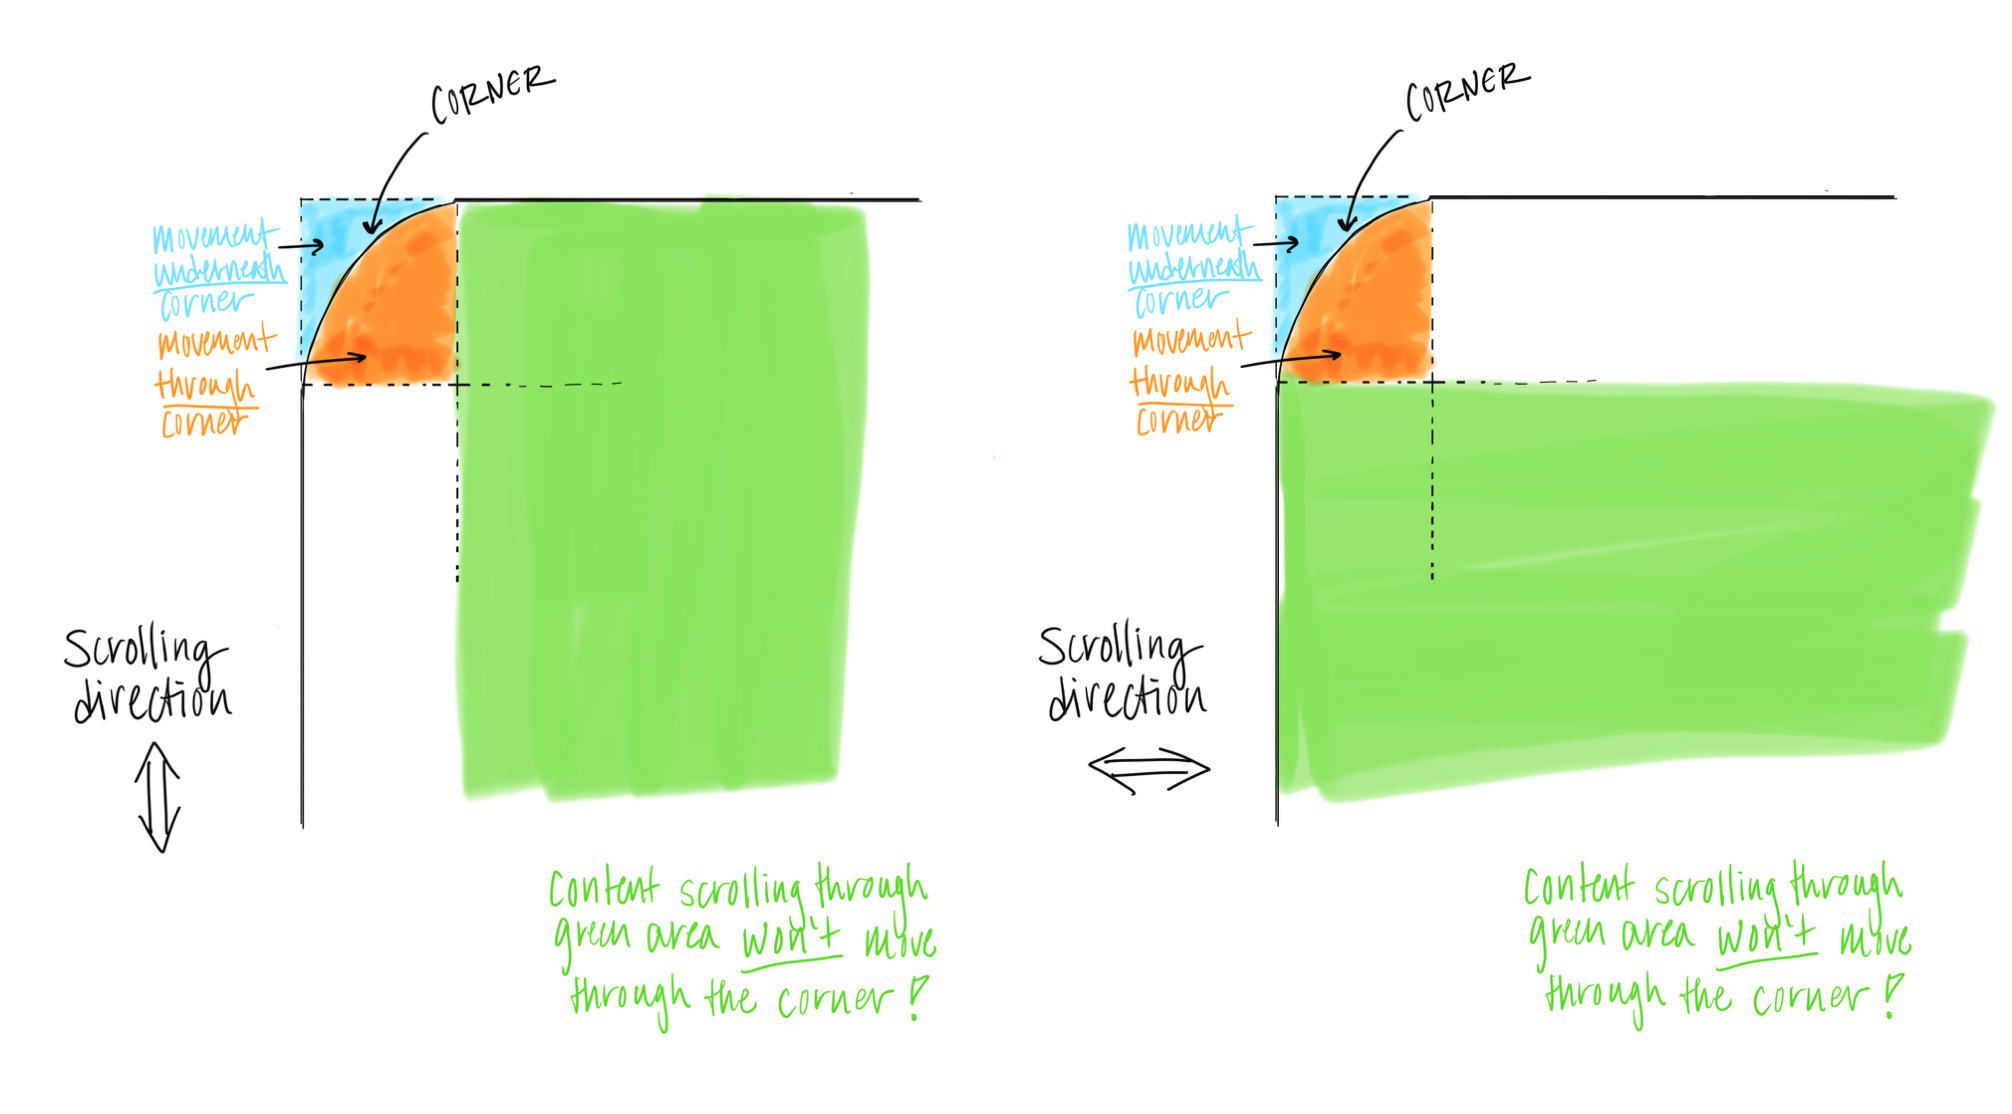 CORNER
movement
underneath
corner
movement
through
corner
Scrolling
direction
Content scrolling through
green area won't move
through the corner!
CORNER
movement
underneath
corner
movement
through
corner
Scrolling
direction
Content scrolling through
green area won't move
through the corner!